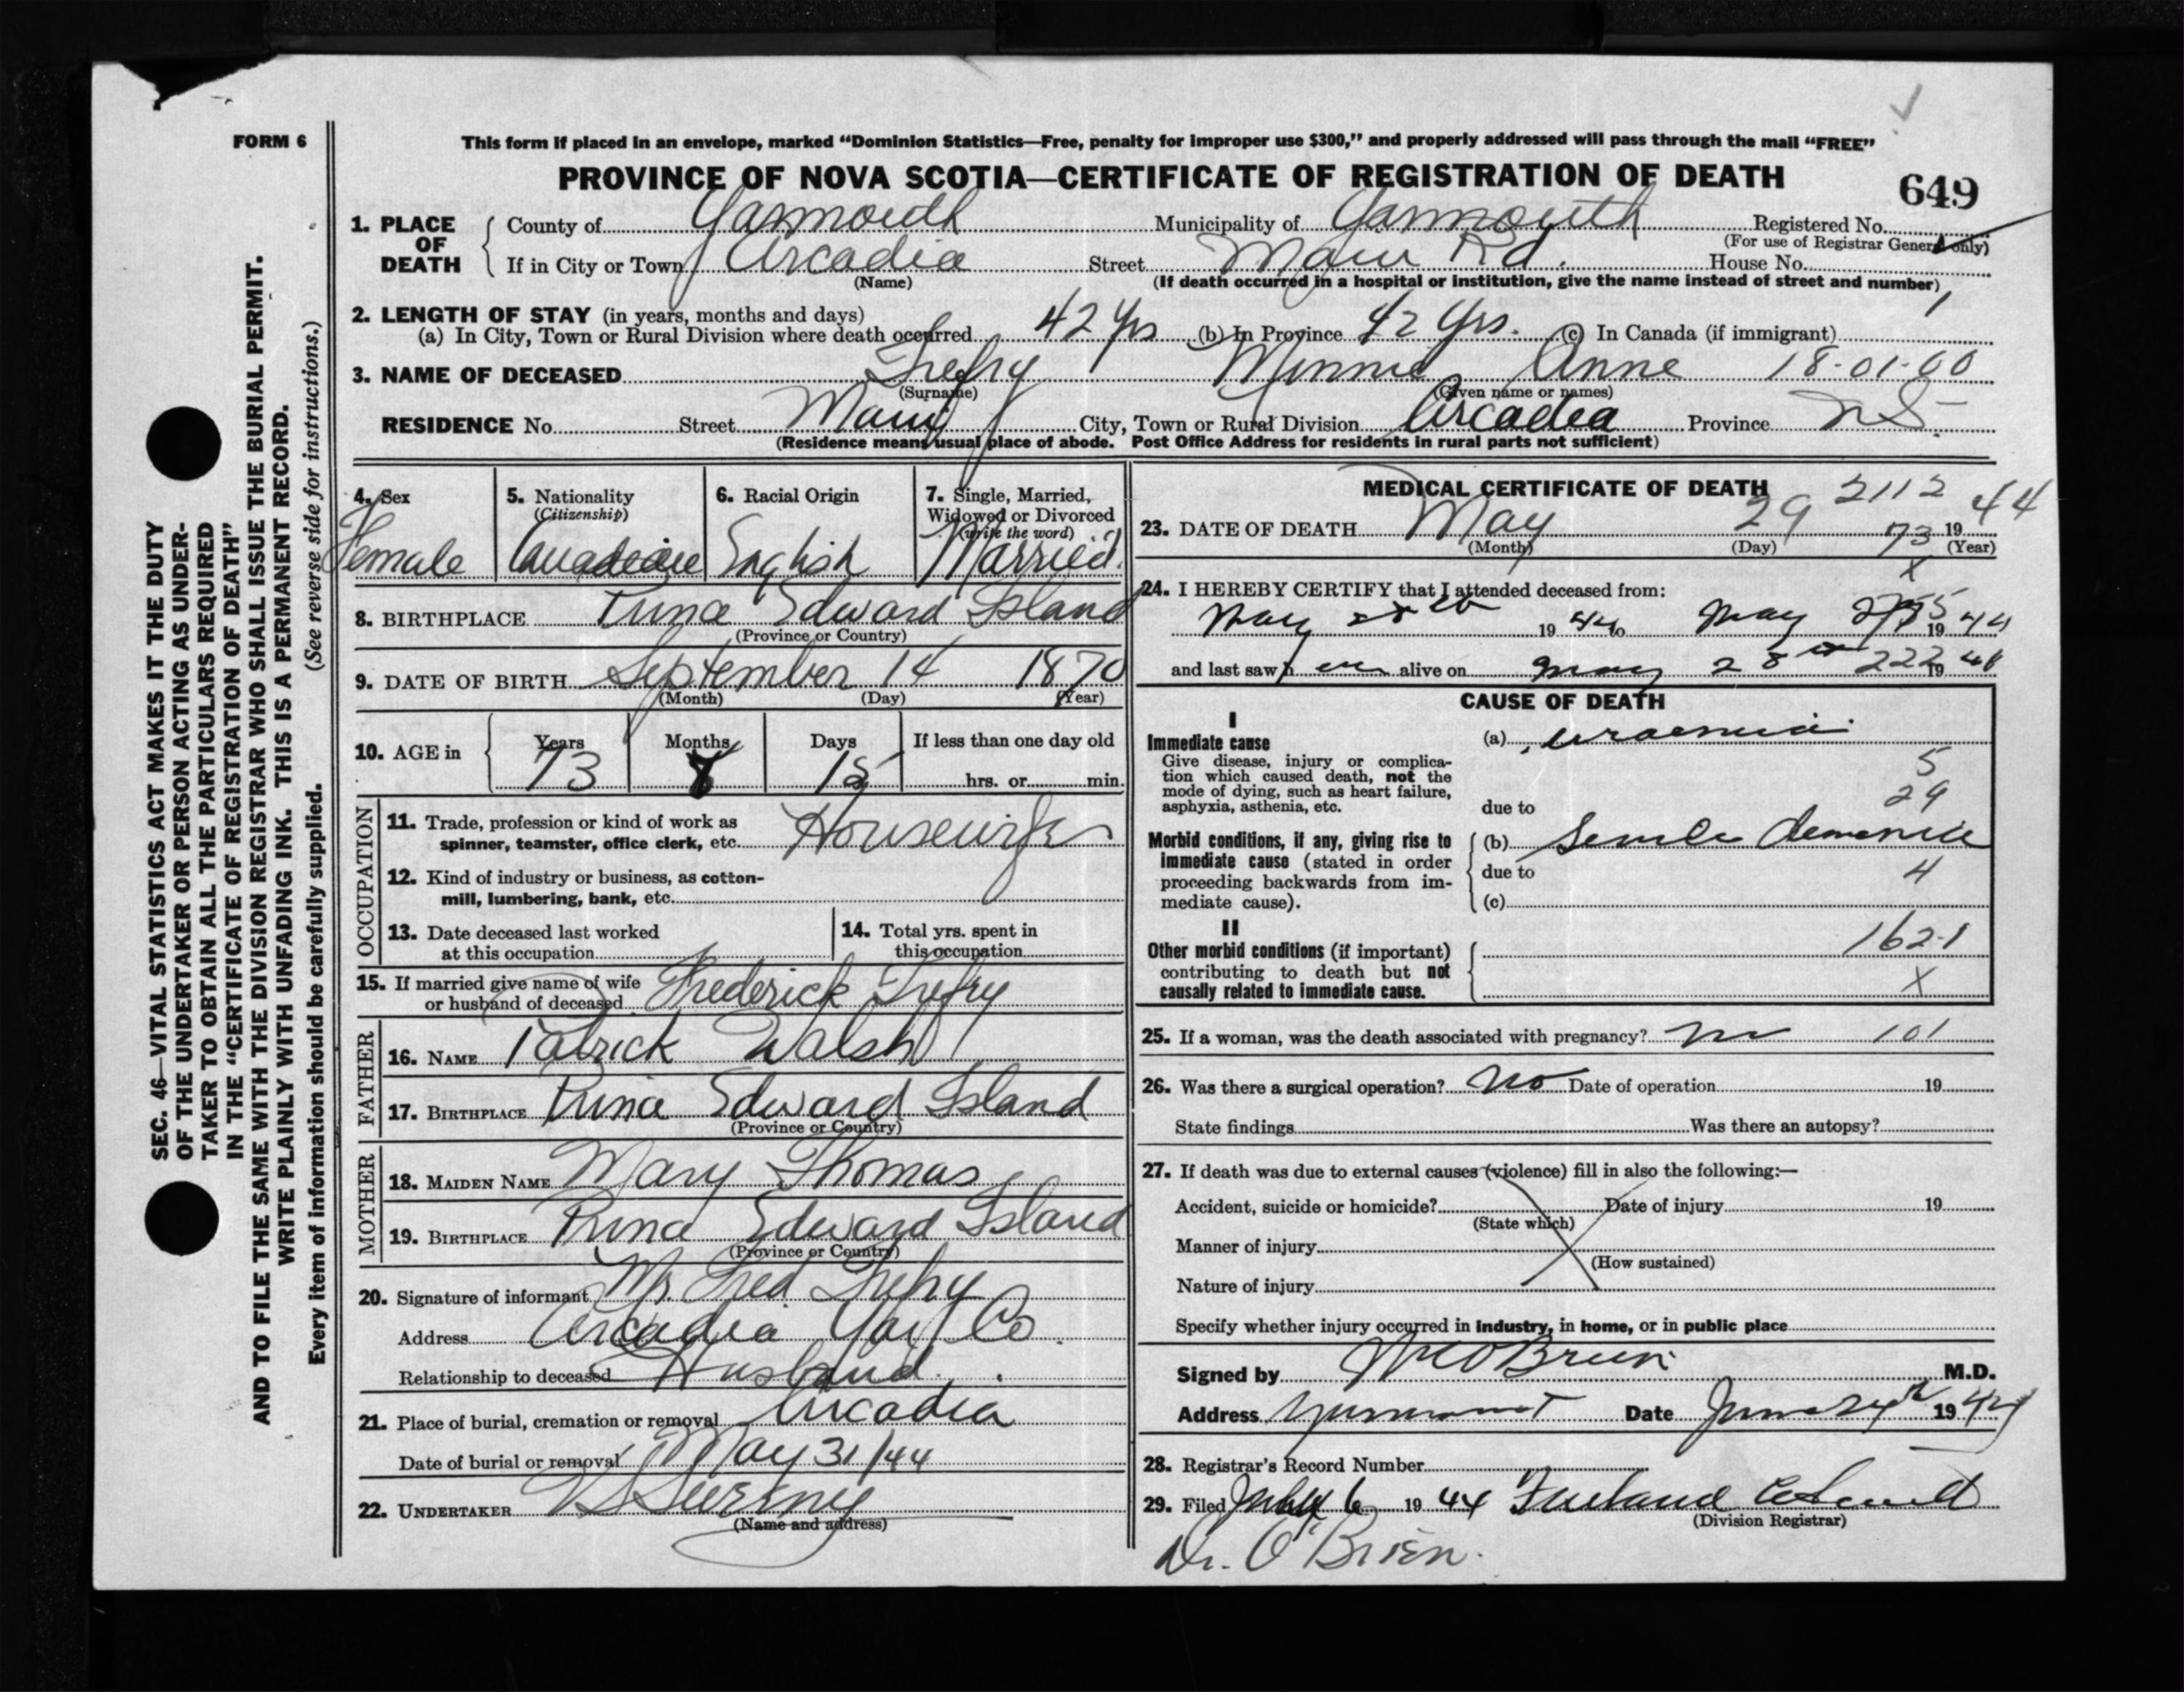 FORM 6
This form if placed in an envelope, marked “Dominion Statistics—Free, penalty for improper use $300,” and properly addressed will pass through the mail “FREE”
PROVINCE OF NOVA SCOTIA—CERTIFICATE OF REGISTRATION OF DEATH
649
1. PLACE OF DEATH
County of Yarmouth Municipality of Yarmouth Registered No.
(For use of Registrar General only)
If in City or Town Arcadia Street Main Rd. House No.
(Name) (If death occurred in a hospital or institution, give the name instead of street and number)
2. LENGTH OF STAY (in years, months and days)
(a) In City, Town or Rural Division where death occurred 42 Yrs (b) In Province 42 Yrs. (c) In Canada (if immigrant)
3. NAME OF DECEASED Trefry Minnie Anne 18-01-00
(Surname) (Given name or names)
RESIDENCE No. Street Main City, Town or Rural Division Arcadia Province N.S.
(Residence means usual place of abode. Post Office Address for residents in rural parts not sufficient)
4. Sex
Female
5. Nationality
(Citizenship)
Canadian
6. Racial Origin
English
7. Single, Married,
Widowed or Divorced
(write the word)
Married
8. BIRTHPLACE Prince Edward Island
(Province or Country)
9. DATE OF BIRTH September 14 1870
(Month) (Day) (Year)
10. AGE in
Years Months Days If less than one day old
73 8 15 hrs. or min.
OCCUPATION
11. Trade, profession or kind of work as
spinner, teamster, office clerk, etc. Housewife
12. Kind of industry or business, as cotton-
mill, lumbering, bank, etc.
13. Date deceased last worked
at this occupation
14. Total yrs. spent in
this occupation
15. If married give name of wife
or husband of deceased Frederick Trefry
FATHER
16. NAME Patrick Walsh
17. BIRTHPLACE Prince Edward Island
(Province or Country)
MOTHER
18. MAIDEN NAME Mary Thomas
19. BIRTHPLACE Prince Edward Island
(Province or Country)
20. Signature of informant Mr. Fred Trefry
Address Arcadia Yar. Co.
Relationship to deceased Husband.
21. Place of burial, cremation or removal Arcadia
Date of burial or removal May 31/44
22. UNDERTAKER V S Sweeny
(Name and address)
MEDICAL CERTIFICATE OF DEATH 2112
23. DATE OF DEATH May 29 1944
(Month) (Day) (Year)
73
X
24. I HEREBY CERTIFY that I attended deceased from:
May 1944 to May 1944
and last saw her alive on May 28th 1944
222
CAUSE OF DEATH
I
Immediate cause
Give disease, injury or complica-
tion which caused death, not the
mode of dying, such as heart failure,
asphyxia, asthenia, etc.
(a) uraemia
5
29
due to
Morbid conditions, if any, giving rise to
immediate cause (stated in order
proceeding backwards from im-
mediate cause).
(b) Senile dementia
due to 4
(c)
II
Other morbid conditions (if important)
contributing to death but not
causally related to immediate cause.
162-1
X
25. If a woman, was the death associated with pregnancy? no 101
26. Was there a surgical operation? No Date of operation 19
State findings Was there an autopsy?
27. If death was due to external causes (violence) fill in also the following:—
Accident, suicide or homicide? Date of injury 19
(State which)
Manner of injury
(How sustained)
Nature of injury
Specify whether injury occurred in industry, in home, or in public place
Signed by O'Brien M.D.
Address Yarmouth Date June 24th 1944
28. Registrar's Record Number
29. Filed July 6 1944
(Division Registrar)
Dr. O'Brien.
SEC. 46—VITAL STATISTICS ACT MAKES IT THE DUTY
OF THE UNDERTAKER OR PERSON ACTING AS UNDER-
TAKER TO OBTAIN ALL THE PARTICULARS REQUIRED
IN THE “CERTIFICATE OF REGISTRATION OF DEATH”
AND TO FILE THE SAME WITH THE DIVISION REGISTRAR WHO SHALL ISSUE THE BURIAL PERMIT.
WRITE PLAINLY WITH UNFADING INK. THIS IS A PERMANENT RECORD.
Every item of information should be carefully supplied. (See reverse side for instructions.)